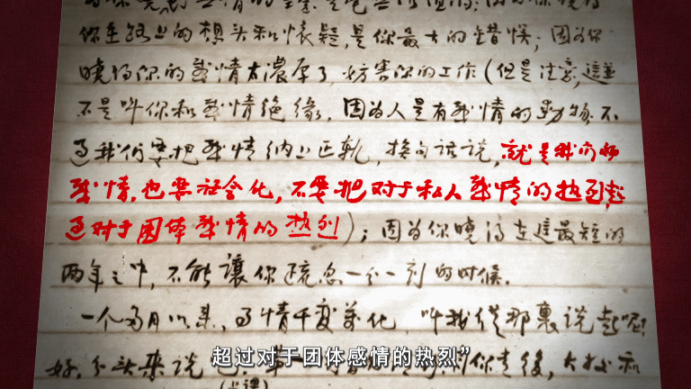 你在路上的想头和怀疑,是你最大的错误;因为你
晓得你的感情太濃厚了,妨害你的工作(但是注意,這並
不是叫你和感情絶缘,因为人是有感情的動物,不
过我们要把感情纳入正軌,换句话说,就是我们的
感情,也要社会化,不要把对于私人感情的热烈,超
过对于团体感情的热烈);因为你晓得在這最短的
两年之中,不能讓你疏忽一分一刻的时候。
一个多月以来,事情千变萬化,叫我從那裏说起呢
好,分头来说 你走後,
超过对于团体感情的热烈”